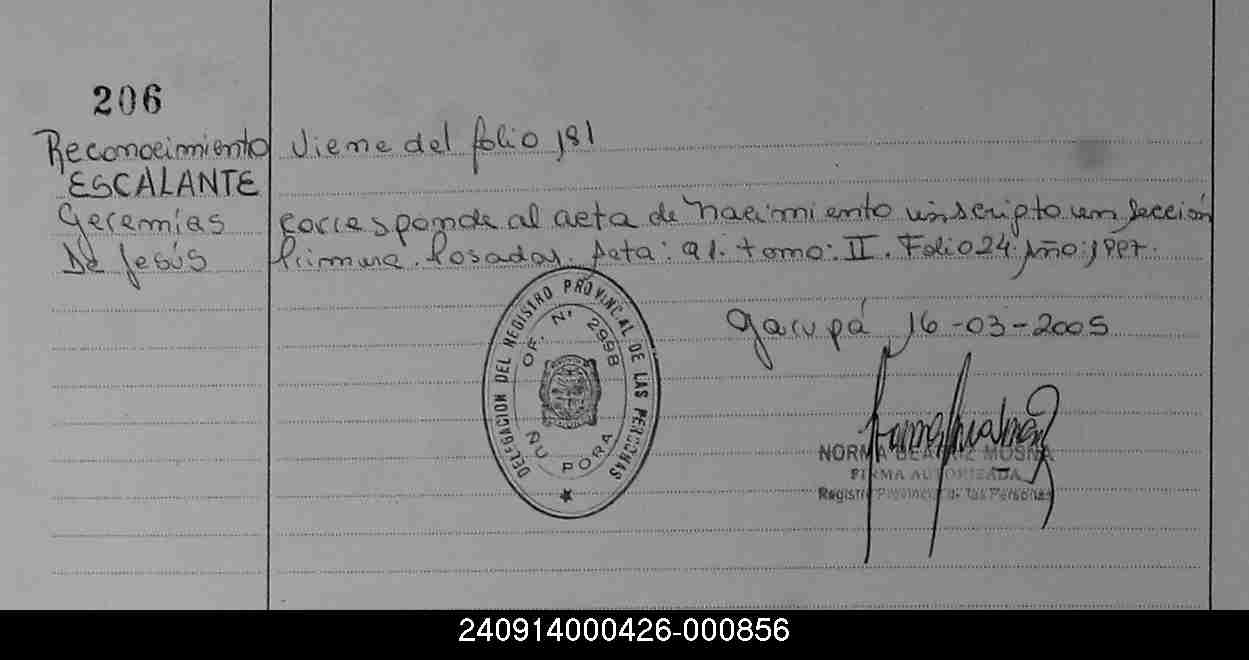 206
Reconocimiento
ESCALANTE
Geremías
De Jesús
Viene del folio 181
corresponde al acta de nacimiento inscripto en Sección
Primera. Posadas. Acta: 91. tomo: II. Folio 24. Año: 1997.
Garupá 16-03-2005
DELEGACION DEL REGISTRO PROVINCIAL DE LAS PERSONAS
OF. Nº 2998
ÑU PORA
NORMA BEATRIZ MOSNA
FIRMA AUTORIZADA
Registro Provincial de las Personas
240914000426-000856